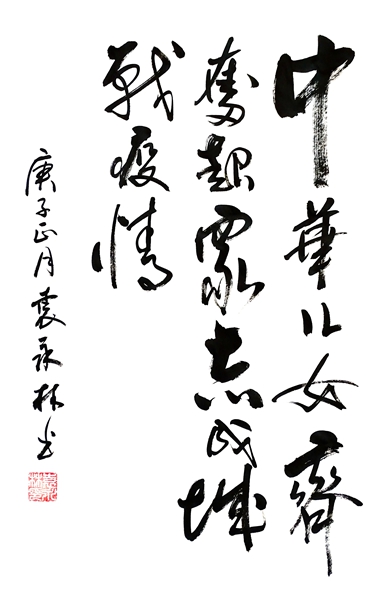 中華儿女齊
奮起眾志成城
戰疫情
庚子正月袁永林书